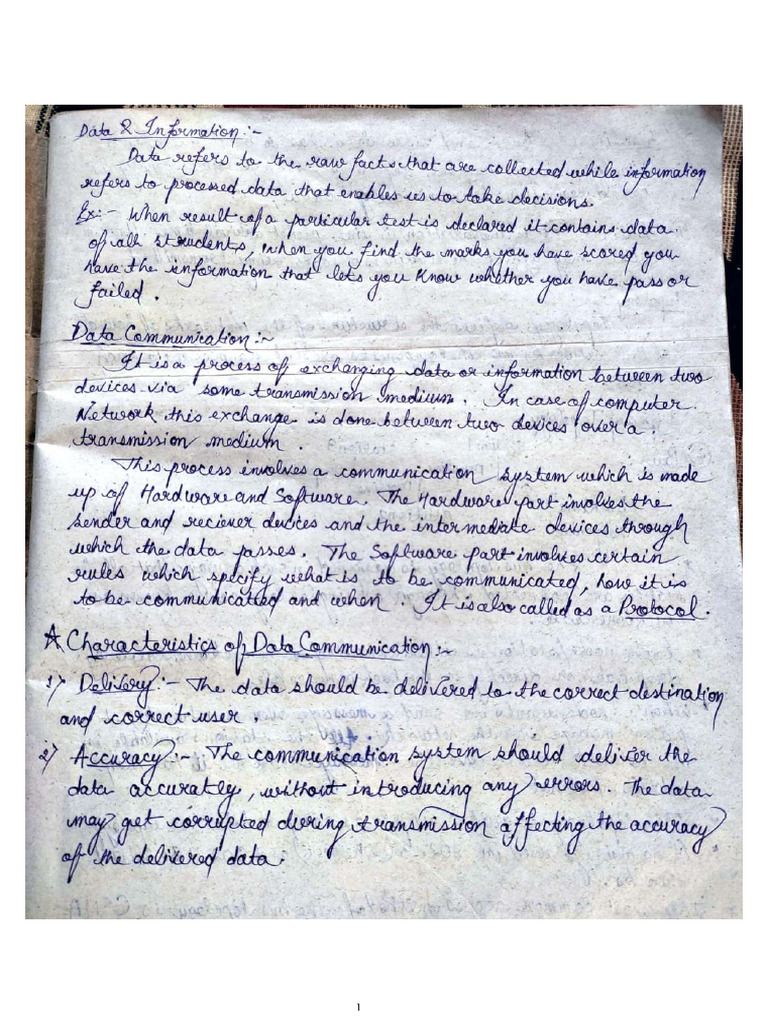 Data & Information :-
Data refers to the raw facts that are collected while information
refers to processed data that enables us to take decisions.
Ex:- When result of a particular test is declared it contains data
of all students, when you find the marks you have scored you
have the information that lets you know whether you have pass or
failed.
Data Communication :-
It is a process of exchanging data or information between two
devices via some transmission medium. In case of computer
Network this exchange is done between two devices over a
transmission medium.
This process involves a communication system which is made
up of Hardware and Software. The Hardware part involves the
sender and reciever devices and the intermediate devices through
which the data passes. The Software part involves certain
rules which specify what is to be communicated, how it is
to be communicated and when. It is also called as a Protocol.
☆ Characteristics of Data Communication :-
1) Delivery :- The data should be delivered to the correct destination
and correct user.
2) Accuracy :- The communication system should deliver the
data accurately, without introducing any errors. The data
may get corrupted during transmission affecting the accuracy
of the delivered data.
1